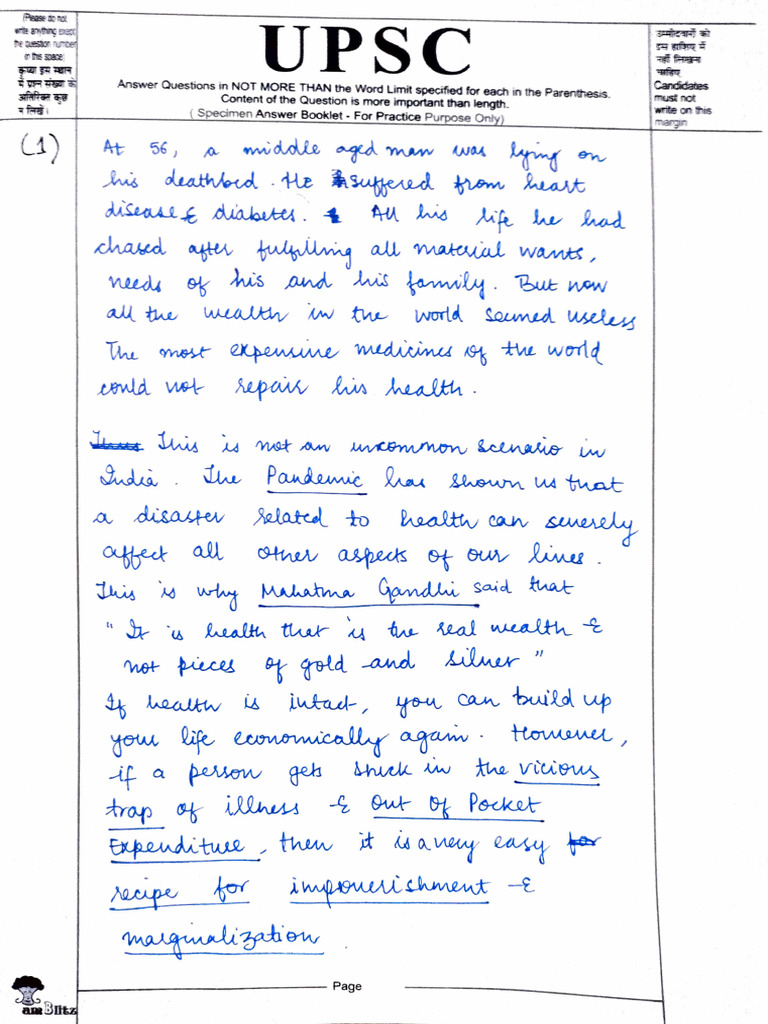 (Please do not
write anything except
the question number
in this space)
कृपया इस स्थान
में प्रश्न संख्या के
अतिरिक्त कुछ
न लिखें।
UPSC
Answer Questions in NOT MORE THAN the Word Limit specified for each in the Parenthesis.
Content of the Question is more important than length.
( Specimen Answer Booklet - For Practice Purpose Only)
उम्मीदवारों को
इस हाशिए में
नहीं लिखना
चाहिए
Candidates
must not
write on this
margin
(1)
At 56, a middle aged man was lying on
his deathbed. He suffered from heart
disease & diabetes. All his life he had
chased after fulfilling all material wants,
needs of his and his family. But now
all the wealth in the world seemed useless
The most expensive medicines of the world
could not repair his health.
This is not an uncommon scenario in
India. The Pandemic has shown us that
a disaster related to health can severely
affect all other aspects of our lives.
This is why Mahatma Gandhi said that
"It is health that is the real wealth &
not pieces of gold and silver"
If health is intact, you can build up
your life economically again. However,
if a person gets stuck in the vicious
trap of illness & Out of Pocket
Expenditure, then it is a very easy for
recipe for impoverishment &
marginalization.
Page
amBlitz